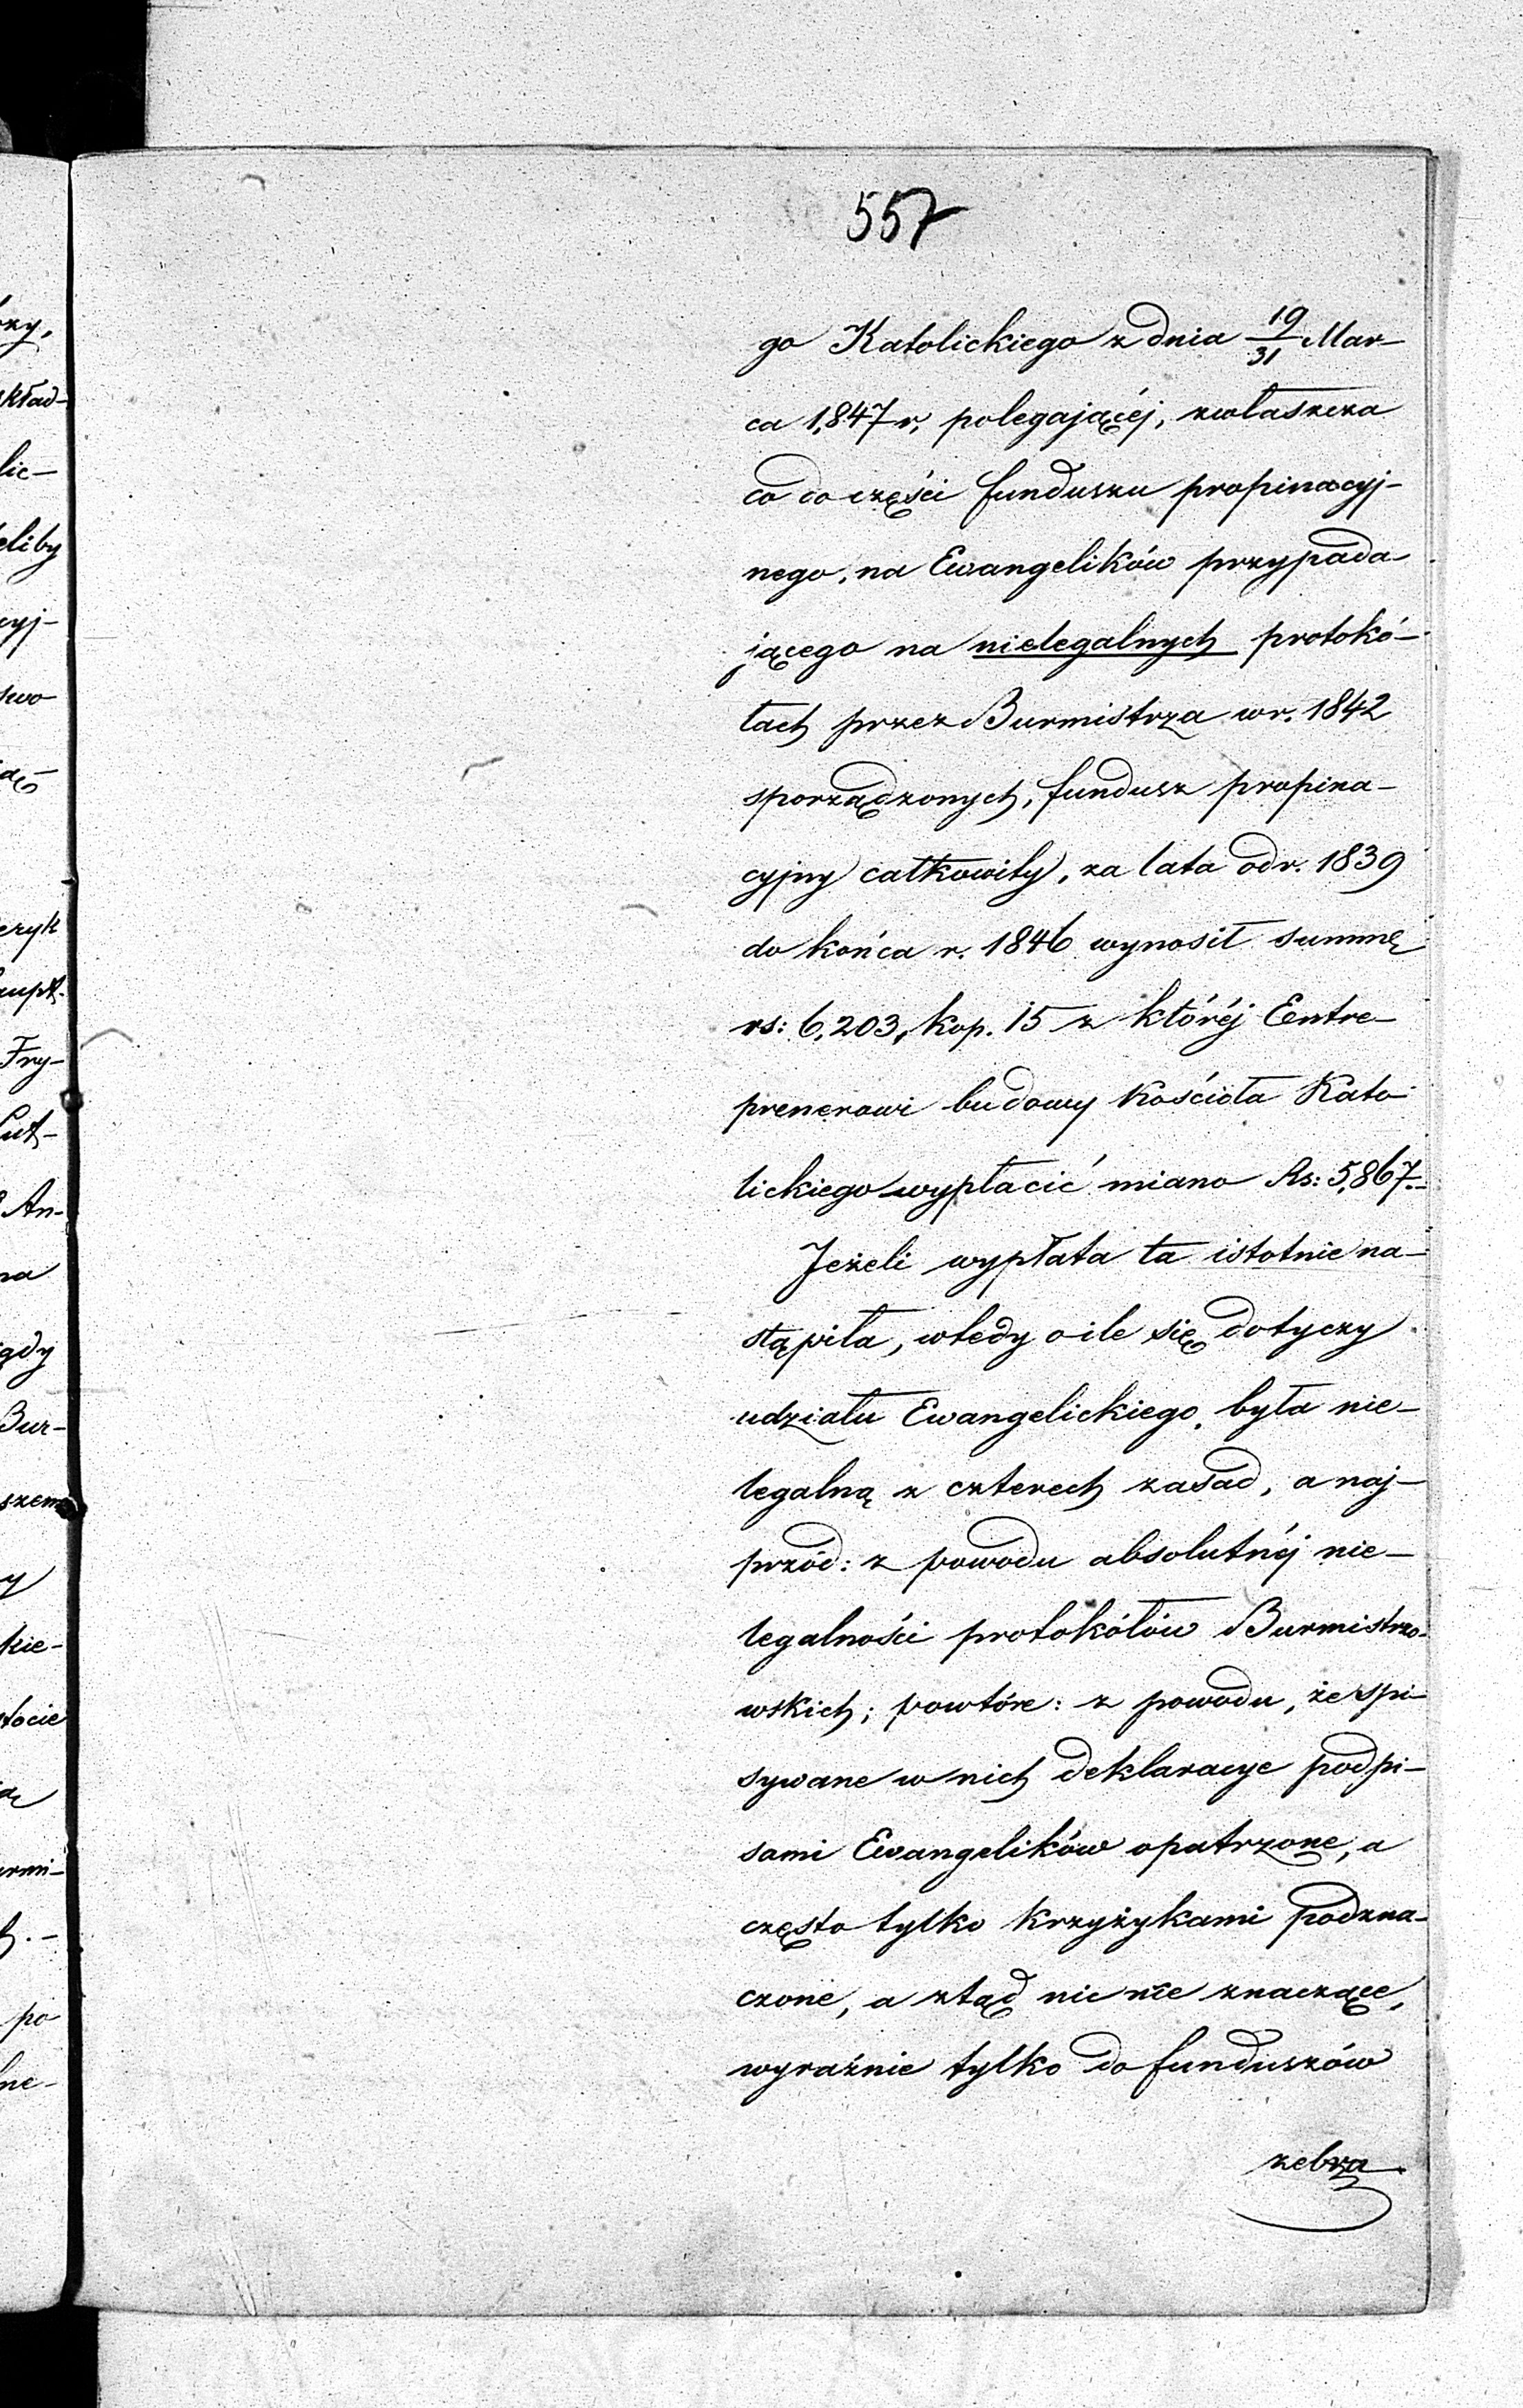 557
go Katolickiego z dnia 19/31 Mar-
ca 1,847 r, polegającéj, zwłaszcza
co do części funduszu propinacyj-
nego, na Ewangelików przypada-
jącego na nielegalnych protokó-
łach przez Burmistrza w r. 1842
sporządzonych, fundusz propina-
cyjny całkowity, za lata od r. 1839
do końca r. 1846 wynosił summę
rs: 6,203, kop. 15 z któréj Entre-
prenerowi budowy Kościoła Kato-
lickiego wypłacić miano Rs: 5,867.-
Jeżeli wypłata ta istotnie na-
stąpiła, wtedy o ile się dotyczy
udziału Ewangelickiego, była nie-
legalną z czterech zasad, a naj-
przód: z powodu absolutnéj nie-
legalności protokółów Burmistrzo-
wskich; powtóre: z powodu, że spi-
sywane w nich deklaracye podpi-
sami Ewangelików opatrzone, a
często tylko krzyżykami podzna-
czone, a ztąd nic nie znaczące,
wyraźnie tylko do funduszów
zebra